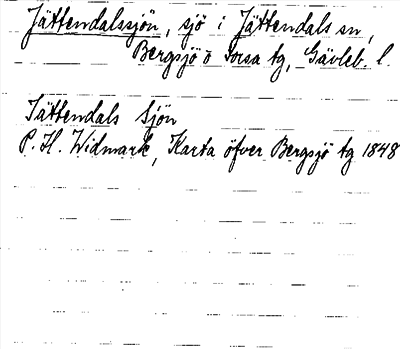 Jättendalssjön, sjö i Jättendals sn,
Bergsjö o Forsa tg, Gävleb. l.
Jättendals Sjön
P. H. Widmark, Karta öfver Bergsjö tg 1848